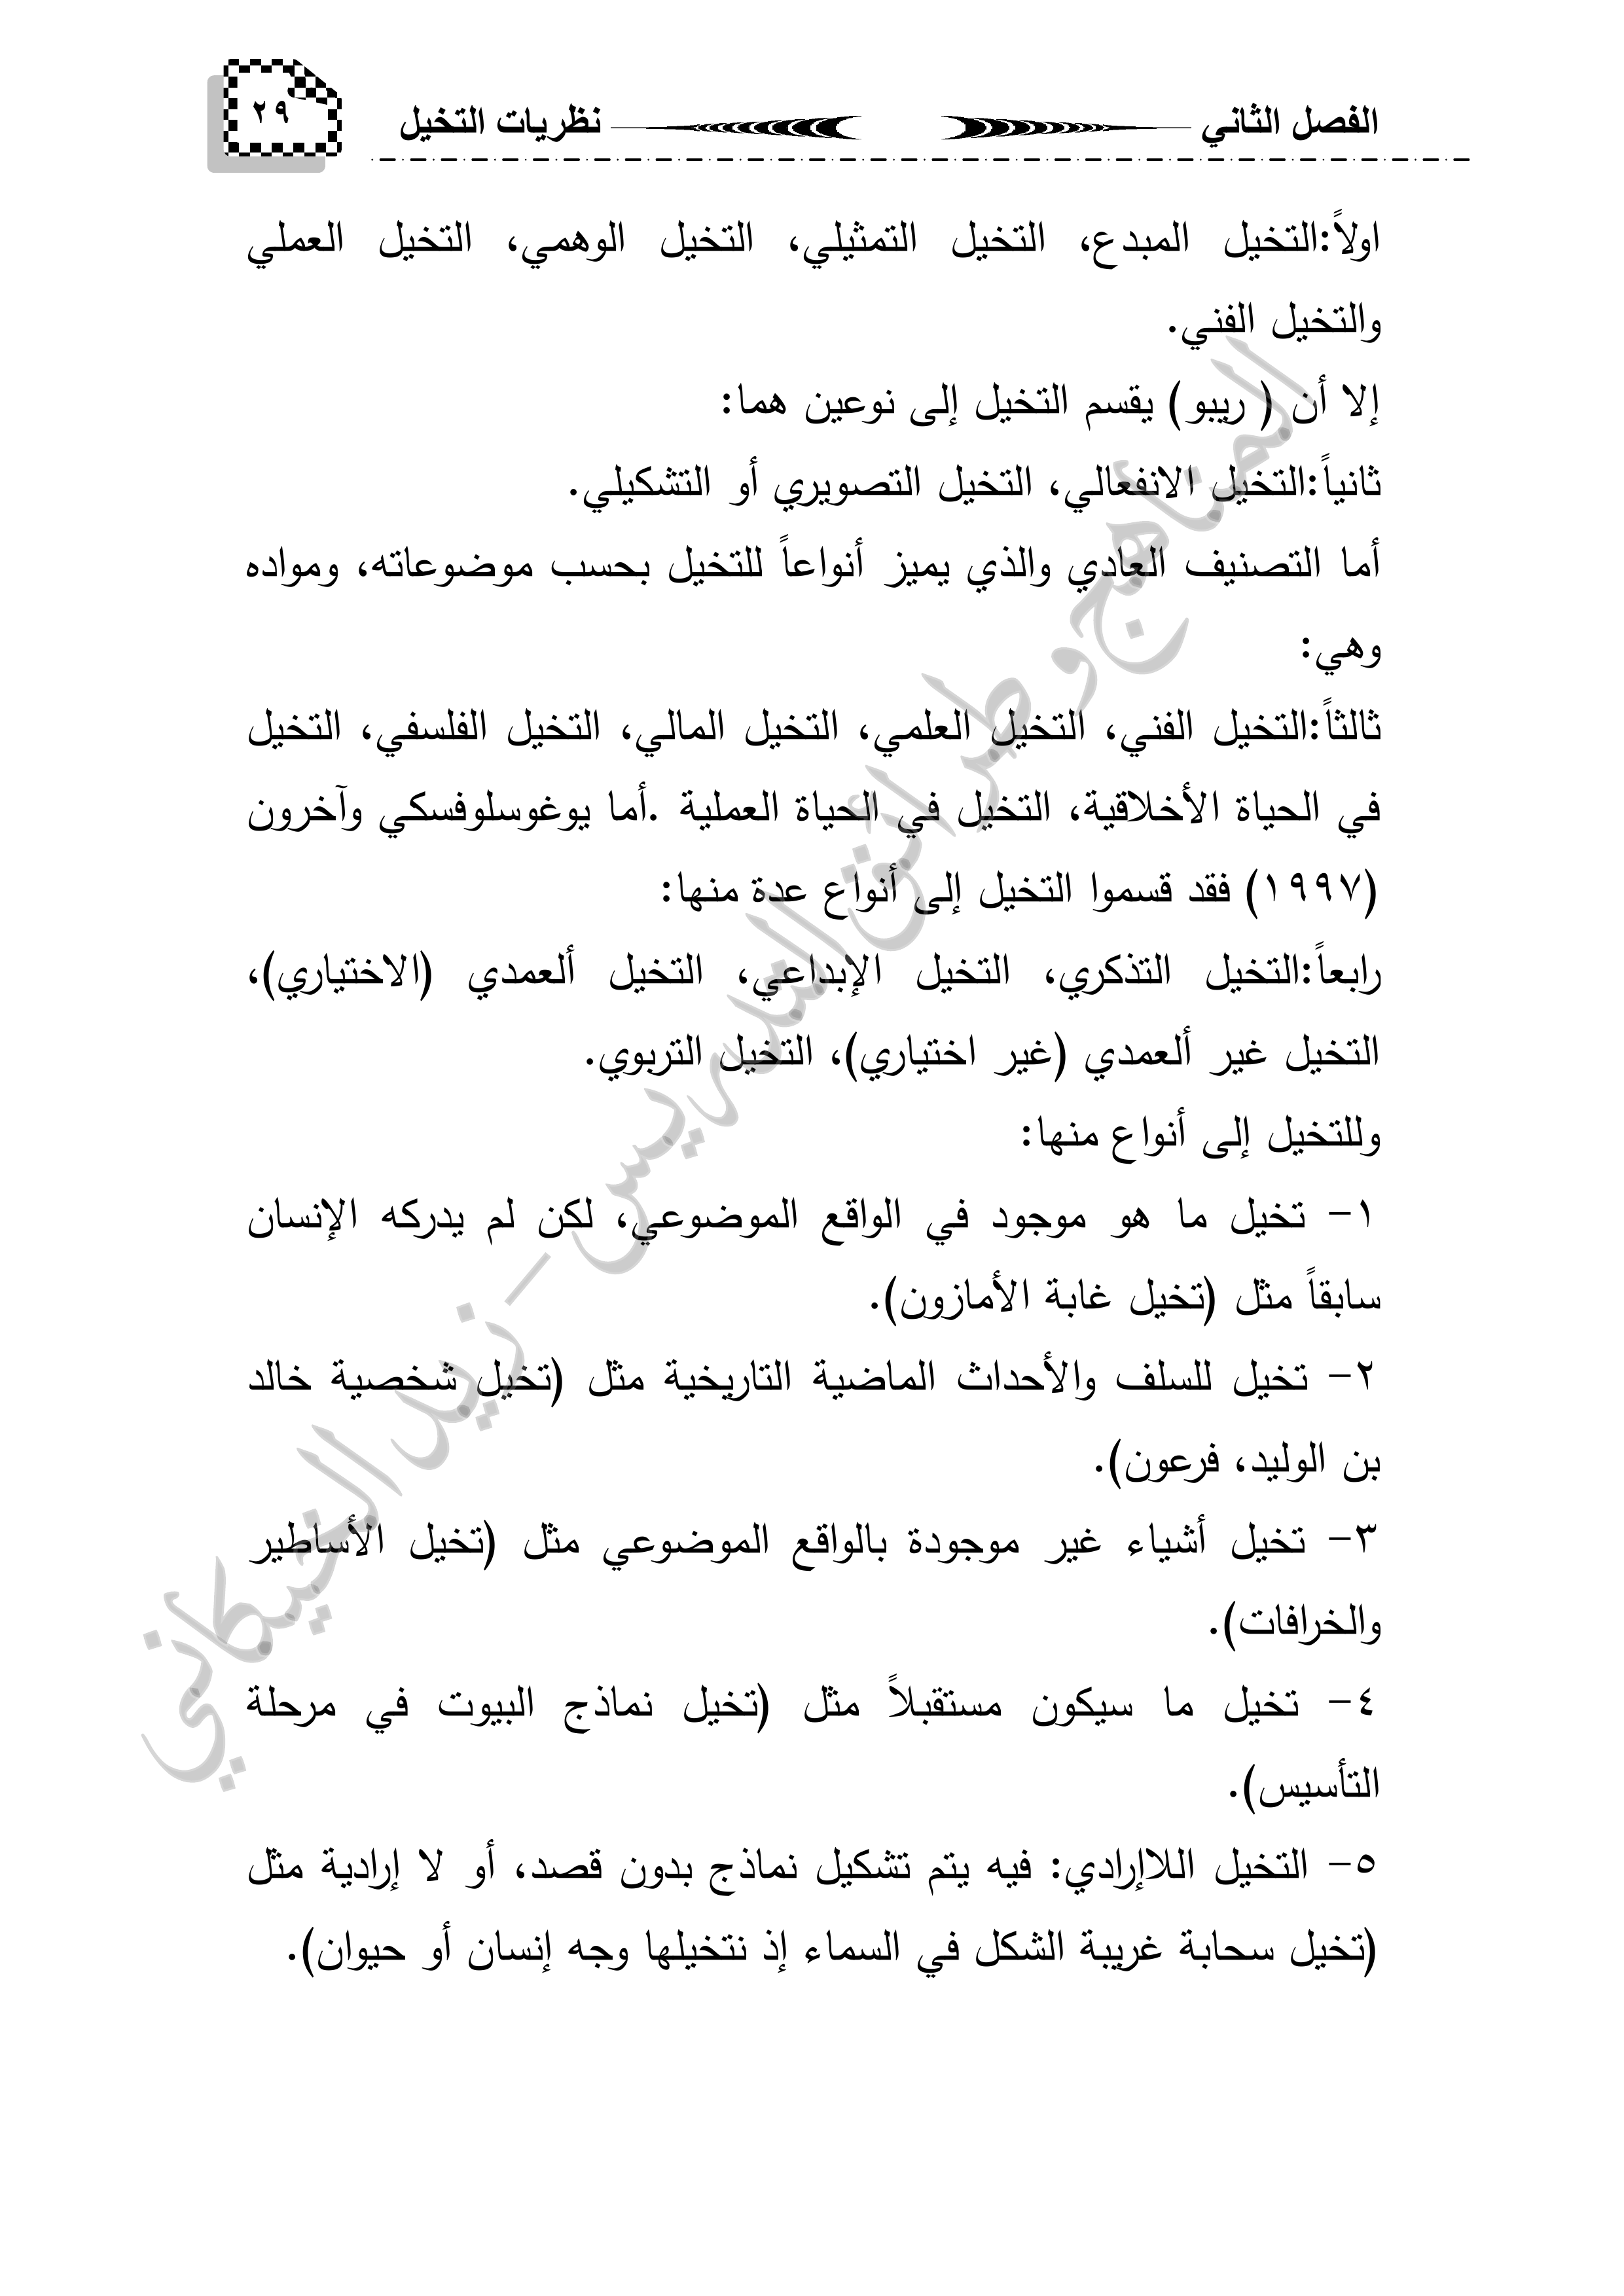 الفصل الثاني نظريات التخيل ٢٩
اولاً:التخيل المبدع، التخيل التمثيلي، التخيل الوهمي، التخيل العملي
والتخيل الفني.
إلا أن ( ريبو) يقسم التخيل إلى نوعين هما:
ثانياً:التخيل الانفعالي، التخيل التصويري أو التشكيلي.
أما التصنيف العادي والذي يميز أنواعاً للتخيل بحسب موضوعاته، ومواده
وهي:
ثالثاً:التخيل الفني، التخيل العلمي، التخيل المالي، التخيل الفلسفي، التخيل
في الحياة الأخلاقية، التخيل في الحياة العملية .أما يوغوسلوفسكي وآخرون
(١٩٩٧) فقد قسموا التخيل إلى أنواع عدة منها:
رابعاً:التخيل التذكري، التخيل الإبداعي، التخيل ألعمدي (الاختياري)،
التخيل غير ألعمدي (غير اختياري)، التخيل التربوي.
وللتخيل إلى أنواع منها:
١- تخيل ما هو موجود في الواقع الموضوعي، لكن لم يدركه الإنسان
سابقاً مثل (تخيل غابة الأمازون).
٢- تخيل للسلف والأحداث الماضية التاريخية مثل (تخيل شخصية خالد
بن الوليد، فرعون).
٣- تخيل أشياء غير موجودة بالواقع الموضوعي مثل (تخيل الأساطير
والخرافات).
٤- تخيل ما سيكون مستقبلاً مثل (تخيل نماذج البيوت في مرحلة
التأسيس).
٥- التخيل اللاإرادي: فيه يتم تشكيل نماذج بدون قصد، أو لا إرادية مثل
(تخيل سحابة غريبة الشكل في السماء إذ نتخيلها وجه إنسان أو حيوان).
المناهج وطرائق التدريس - زيد الخيكاني